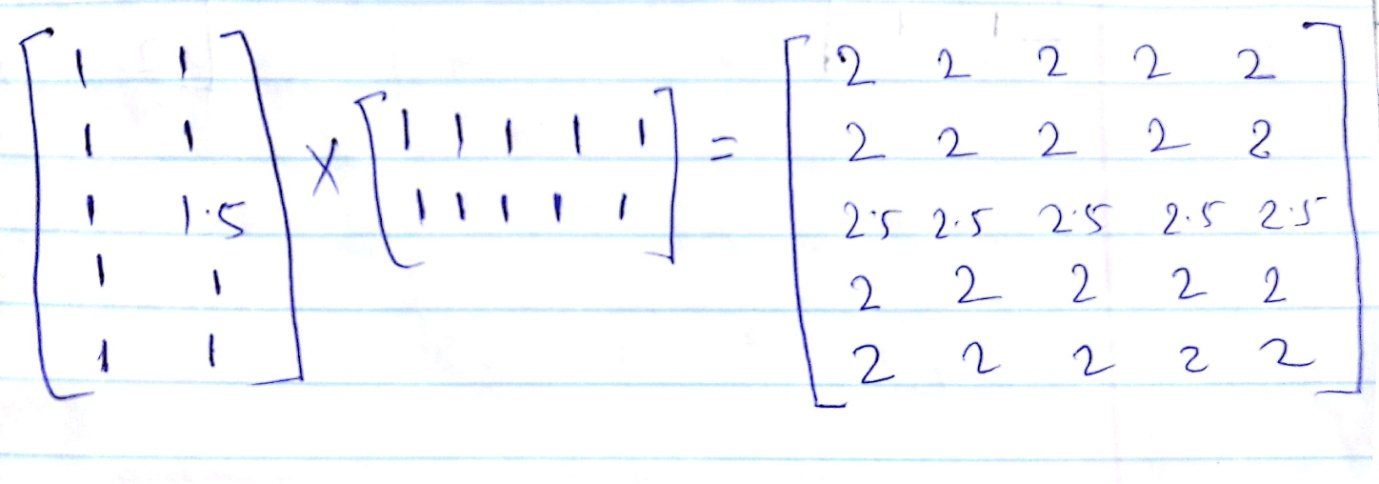 [1 1; 1 1; 1 1.5; 1 1; 1 1] × [1 1 1 1 1; 1 1 1 1 1] = [2 2 2 2 2; 2 2 2 2 2; 2.5 2.5 2.5 2.5 2.5; 2 2 2 2 2; 2 2 2 2 2]